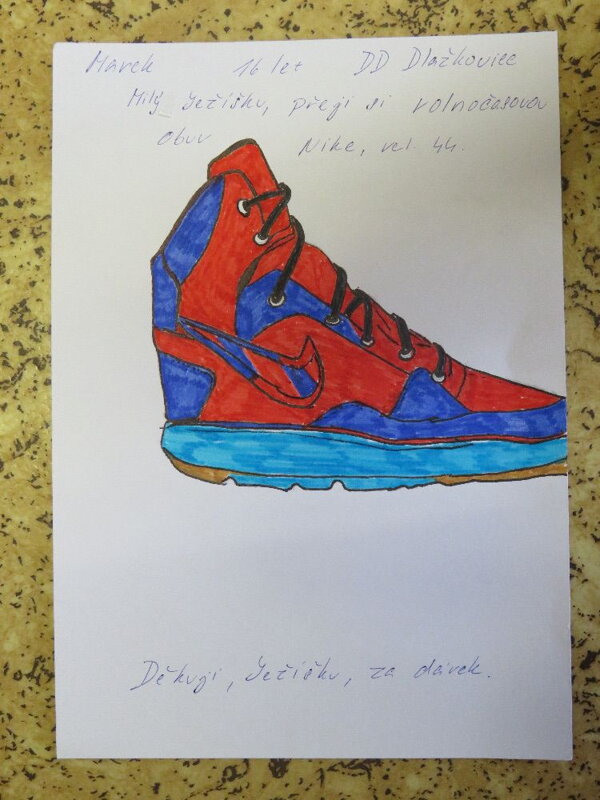 Marek 16 let DD Dlažkovice
Milý Ježíšku, přeji si volnočasovou
obuv Nike, vel. 44.
Děkuji, Ježíšku, za dárek.